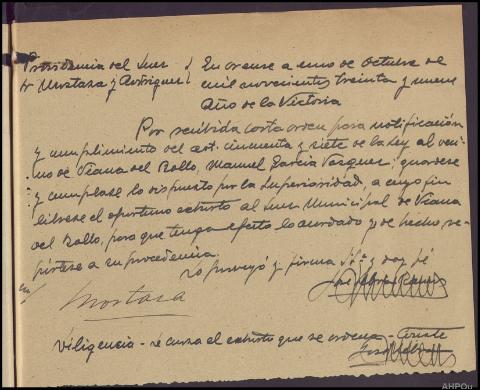 Providencia del Juez
Sr Mostaza y Rodriguez
En orense a uno de Octubre de
mil novecientos treinta y nueve
Año de la Victoria
Por recibida carta orden para notificación
y cumplimiento del art. cincuenta y siete de la Ley al veci-
no de Viana del Bollo, Manuel Garcia Vazquez guardese
y cumplase lo dispuesto por la Superioridad, a cuyo fin
librese el oportuno exhorto al Juez Municipal de Viana
del Bollo, para que tenga efecto lo acordado y de hecho re-
pórtese a su procedencia.
Lo proveyó y firma SSª y doy fé
Mostaza
Diligencia - se cursa el exhorto que se ordena -
AHPOu